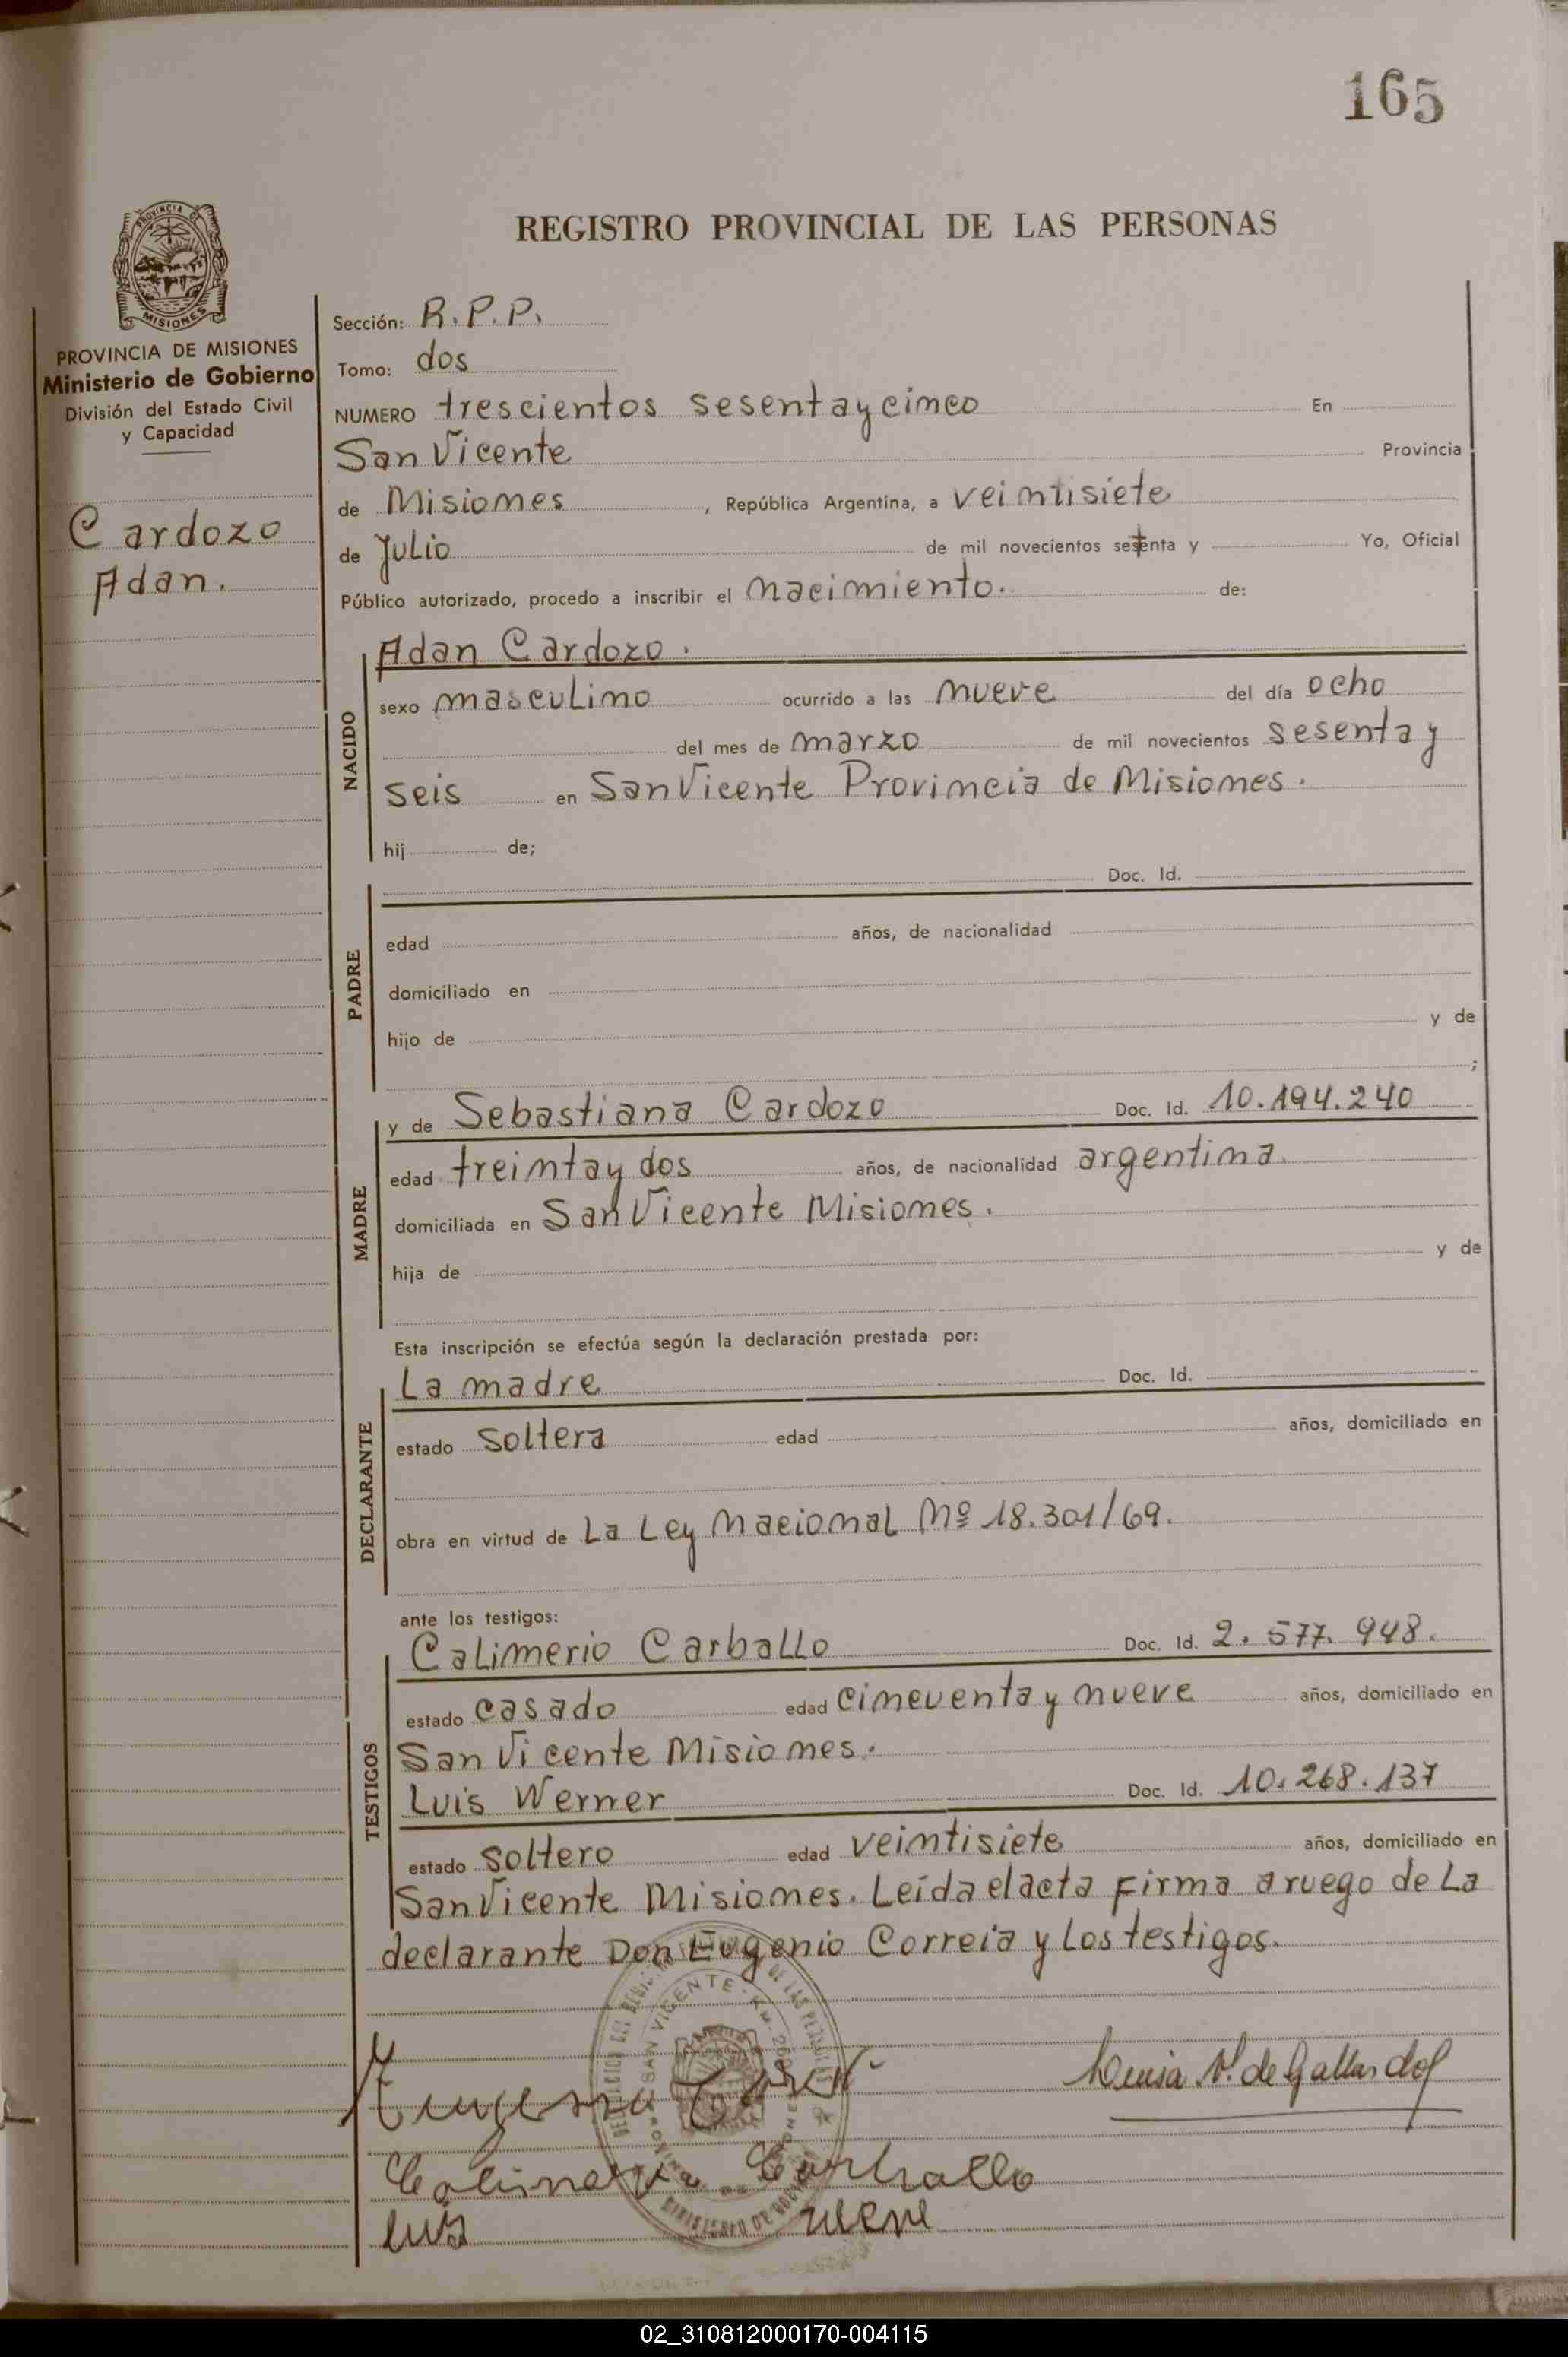 165
REGISTRO PROVINCIAL DE LAS PERSONAS
PROVINCIA DE
MISIONES
PROVINCIA DE MISIONES
Ministerio de Gobierno
División del Estado Civil
y Capacidad
Cardozo
Adan.
Sección: R.P.P.
Tomo: dos
NUMERO trescientos sesenta y cinco En
San Vicente Provincia
de Misiones, República Argentina, a veintisiete
de Julio de mil novecientos setenta y Yo, Oficial
Público autorizado, procedo a inscribir el nacimiento. de:
NACIDO
Adan Cardozo.
sexo masculino ocurrido a las nueve del día ocho
del mes de marzo de mil novecientos sesenta y
seis en San Vicente Provincia de Misiones.
hij de;
Doc. Id.
PADRE
edad años, de nacionalidad
domiciliado en
hijo de y de
;
MADRE
y de Sebastiana Cardozo Doc. Id. 10.194.240
edad treinta y dos años, de nacionalidad argentina.
domiciliada en San Vicente Misiones.
hija de y de
Esta inscripción se efectúa según la declaración prestada por:
DECLARANTE
La madre Doc. Id.
estado soltera edad años, domiciliado en
obra en virtud de La Ley Nacional Nº 18.301/69.
ante los testigos:
TESTIGOS
Calimerio Carballo Doc. Id. 2.577.948.
estado casado edad cincuenta y nueve años, domiciliado en
San Vicente Misiones.
Luis Werner Doc. Id. 10.268.137
estado soltero edad veintisiete años, domiciliado en
San Vicente Misiones. Leída el acta firma a ruego de La
declarante Don Eugenio Correia y Los testigos.
SAN VICENTE
Luisa V. de Gallardo
Calimerio Carballo
Luis
02_310812000170-004115